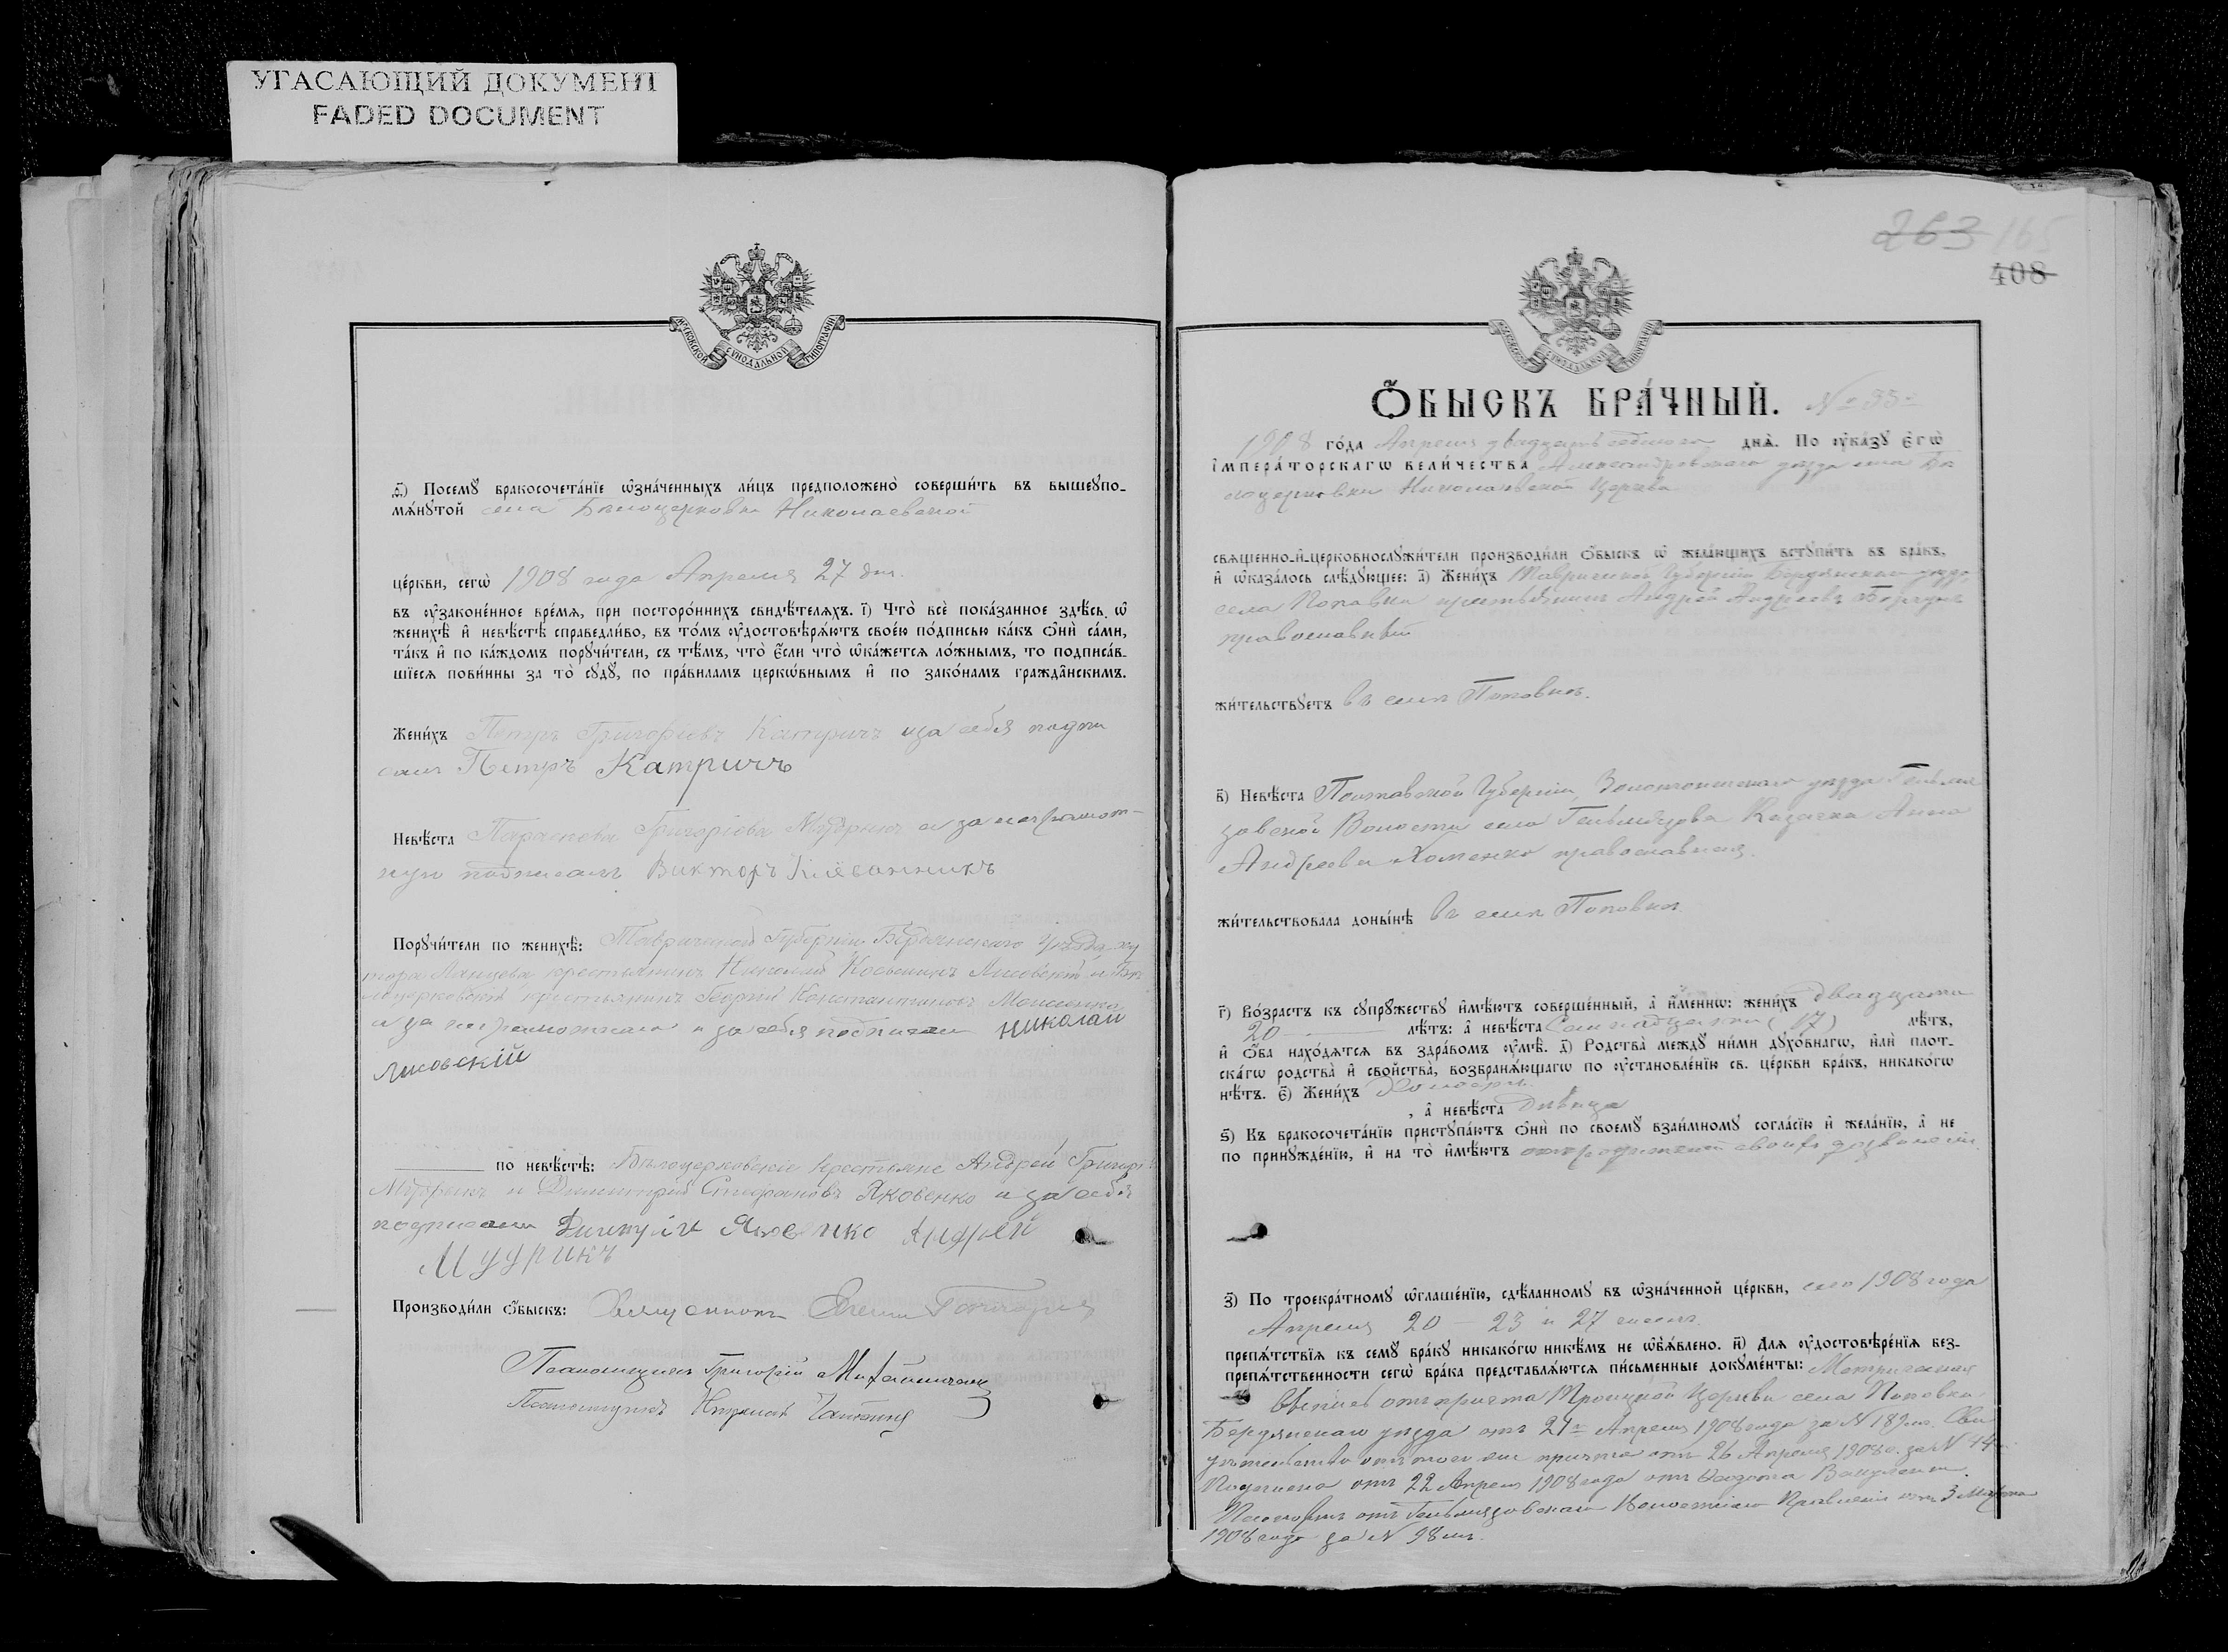 УГАСАЮЩИЙ ДОКУМЕНТ
FADED DOCUMENT
МОСКОВСКОЙ СѴНОДАЛЬНОЙ ТИПОГРАФІИ
д҃) Посемꙋ̀ бракосочета́нїе ѡ҆зна́ченныхъ ли́цъ предположено̀ соверши́ть въ вышеꙋпо-
мѧ́нꙋтой села Бѣлоцерковки Николаевской
це́ркви, сегѡ̀ 1908 года Апреля 27 дня.
въ ᲂу҆законе́нное вре́мѧ, при посторо́ннихъ свидѣ́телѧхъ. і҃) Что̀ всѐ пока́занное здѣ́сь ѡ҆
женихѣ̀ и҆ невѣ́стѣ справедли́во, въ то́мъ ᲂу҆достовѣрѧ́ютъ свое́ю по́дписью ка́къ ѻ҆нѝ са́ми,
та́къ и҆ по ка́ждомъ порꙋчи́тели, съ тѣ́мъ, что̀ є҆́сли что̀ ѡ҆ка́жетсѧ ло́жнымъ, то подписа́в-
шїесѧ пови́нны за то̀ сꙋдꙋ̀, по пра́виламъ церкѡ́внымъ и҆ по зако́намъ гражда̑нскимъ.
Жени́хъ Петръ Григорьевъ Катричъ и за себя подпи
салъ Петръ Катричъ
Невѣ́ста Параскева Григоріова Мудрикъ а за неграмот-
ную подписалъ Викторъ
Порꙋчи́тели по женихѣ̀: Таврической Губерніи Бердянскаго Уѣзда, ху
тора крестьянинъ Николай Косьминъ Лисовскій и Бѣ
лоцерковскій крестьянинъ Георгій Константиновъ Моисенко
и за неграмотнаго и за себя подписалъ Николай
Лисовскій
по невѣ́стѣ: Бѣлоцерковскіе крестьяне Андрей Григор
Мудрикъ и Димитрій Стефановъ Яковенко и за себя
подписали Димитрій Яковенко Андрей
Мудрикъ
Производи́ли ѻ҆́быскъ: Священникъ
Псаломщикъ Григорій
Псаломщикъ
263 165
408
Ѻ҆́БЫСКЪ БРА́ЧНЫЙ. № 33
1908 го́да Апреля двадцать седьмого днѧ̀. По ᲂу҆ка́зꙋ Є҆гѡ̀
І҆мпера́торскагѡ вели́чества Александровскаго уѣзда села Бѣ
лоцерковки Николаевской Церкви
свѧще́нно-и҆-церковнослꙋжи́тели производи́ли ѻ҆́быскъ ѡ҆ жела́ющихъ встꙋпи́ть въ бра́къ,
и҆ ѡ҆каза́лось слѣ́дꙋющее: а҃) Жени́хъ Таврической Губерніи Бердянскаго уѣзда
села Поповки крестьянинъ Андрей Андреевъ
православный
жи́тельствꙋетъ въ селѣ Поповкѣ.
в҃) Невѣ́ста Полтавской Губерніи, Золотоношскаго уѣзда Гельмя
зовской Волости села Гельмязова Казачка Анна
Андреева Хоменко православная.
жи́тельствовала доны́нѣ въ селѣ Поповкѣ.
г҃) Во́зрастъ къ сꙋпрꙋ́жествꙋ и҆мѣ́ютъ соверше́нный, а҆ и҆́меннѡ: жени́хъ двадцати
20 лѣ́тъ: а҆ невѣ́ста Семнадцати (17) лѣ́тъ,
и҆ ѻ҆́ба нахо́дѧтсѧ въ здра́вомъ ᲂу҆мѣ̀. д҃) Родства̀ междꙋ ни́ми дꙋхо́внагѡ, и҆лѝ плот-
ска́гѡ родства̀ и҆ сво́йства̀, возбранѧ́ющагѡ по ᲂу҆становле́нїю св. це́ркви бра́къ, никако́гѡ
нѣ́тъ. є҃) Жени́хъ Холостъ.
, а҆ невѣ́ста Дѣвица
ѕ҃) Къ бракосочета́нїю пристꙋпа́ютъ ѻ҆нѝ по своемꙋ̀ взаи́мномꙋ согла́сїю и҆ жела́нїю, а҆ не
по принꙋжде́нїю, и҆ на то̀ и҆мѣ́ютъ отъ родителей своихъ дозволеніе
з҃) По троекра́тномꙋ ѡ҆глаше́нїю, сдѣ́ланномꙋ въ ѡ҆зна́ченной це́ркви, сего 1908 года
Апреля 20 – 23 и 27 чиселъ.
препѧ́тствїѧ къ семꙋ̀ бра́кꙋ никако́гѡ никѣ́мъ не ѡ҆б̾ѧ́влено. и҃) Длѧ̀ ᲂу҆достовѣре́нїѧ без-
препѧ́тственности сегѡ̀ бра́ка представлѧ́ютсѧ пи́сьменные докꙋме́нты: Метрическая
выпись отъ причта Троицкой Церкви села Поповки
Бердянскаго уѣзда отъ 24 Апреля 1908 года за № 189 Сви
дѣтельство отъ того же причта отъ 26 Апреля 1908 г. за № 44
Подписка отъ 22 Апреля 1908 года отъ
Паспортъ отъ Гельмязовскаго Волостнаго Правленія отъ 3 Марта
1908 года за № 98